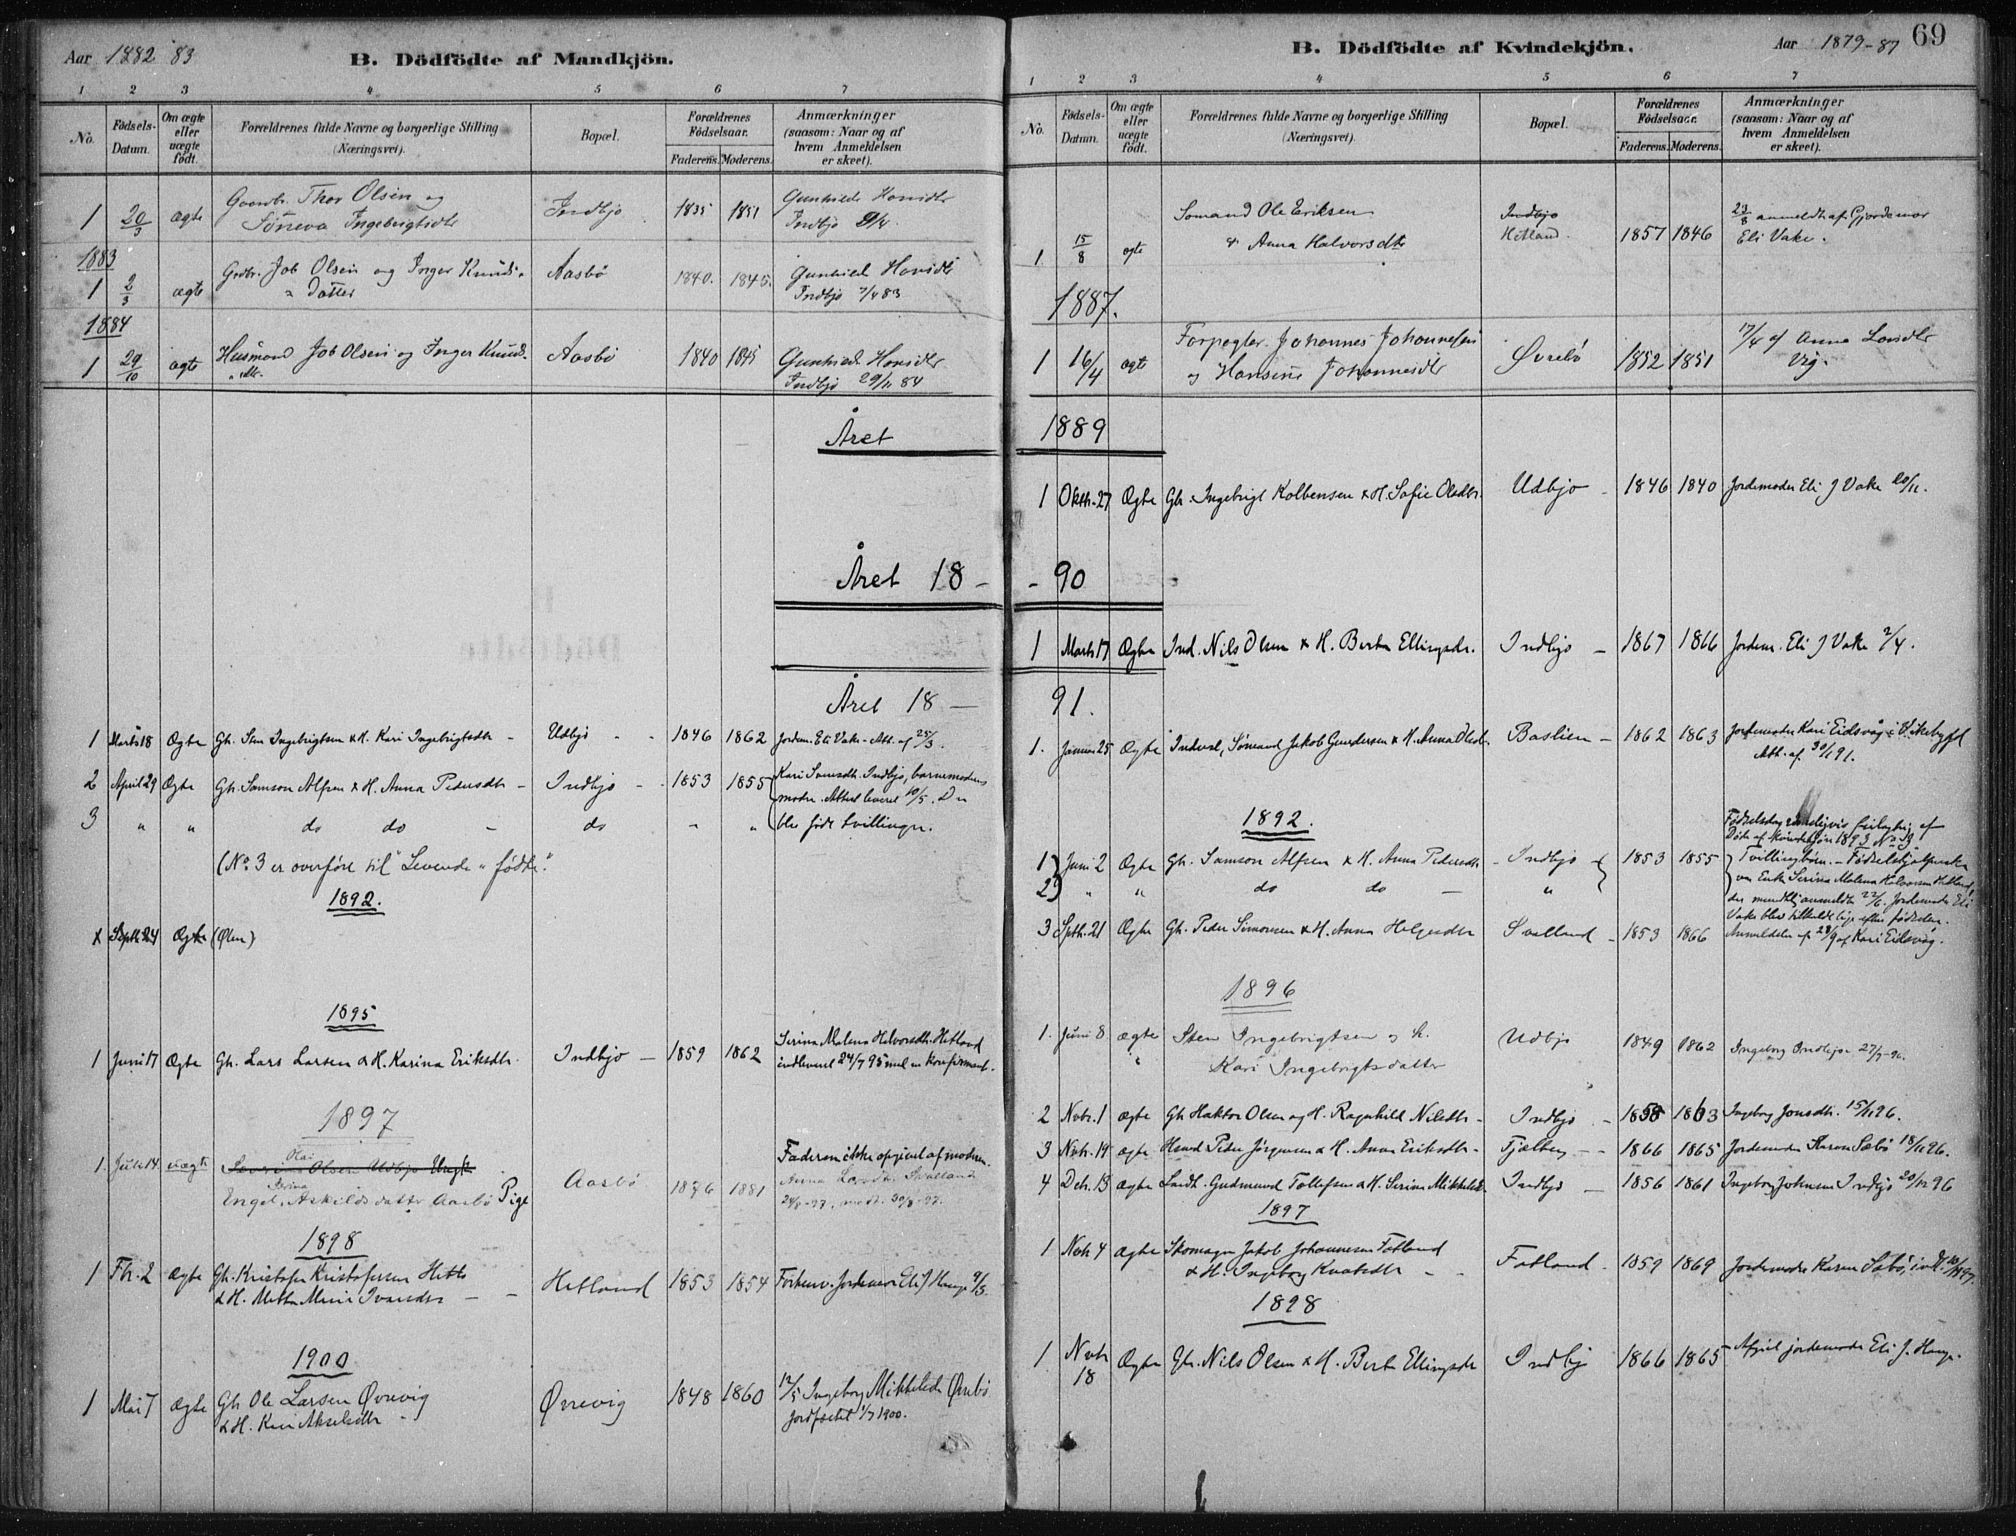 Aar 1882 83
B. Dödfödte af Mandkjön.
1 2 3 4 5 6 7
No.
Födsels-Datum.
Om ægte eller uægte födt.
Forældrenes fulde Navne og borgerlige Stilling
(Næringsvei).
Bopæl.
Forældrenes Födselsaar.
Faderens. Moderens.
Anmærkninger
(saasom: Naar og af
hvem Anmeldelsen
er skeet).
Gaardbr. Thor Olsen og
1 20/3 ægte Söneva Ingebrigtsdtr Indbjo 1835 1851 Gunhild
Indbjo
1883
1 2/3 ægte Grdbr. Job Olsen og Inger Knuds- Aasbö 1840. 1845. Gunhild
datter Indbjo 7/4 83
1884
1 29/10 ægte Husmand Job Olsen og Inger Knuds- Aasbö 1840 1845 Gunhild
dtr. Indbjo 29/11 84
Året
Året 18 –
Året 18 –
1 Marts 18 Ægte Gb. Sten Ingebrigtsen & H. Kari Ingebrigtsdtr – Udbjo – 1846 1862 Jordm. Eli Vake – Att. af 25/3.
2 April 29 Ægte Gb. Samson Alfsen & H. Anna Pedersdtr – Indbjo – 1853 1855 Kari Samsdtr. Indbjo, barnemoderens
moder. Attest leveret 10/5. Der
3 " " do do – do – " blev født tvillinger.
(No 3 er overført til "Levende" fødte".
1892.
x Septb. 24 Ægte (Ølen)
1895
1 Juni 17 Ægte Gb. Lars Larsen & H. Karina Eriksdtr. Indbjo – 1859 1862 Serina Malena Halvorsdtr. Hetland
indleveret 24/7 95 med en konfirmant.
1897
1. Juli 14 uægte Olsen Udbjo Ungk. Faderen ikke opgivet af modren.
Engel Serina Askildsdatter Aasbö Pige Aasbö 1876 1881 Anna Svolland
1898
1 Fb. 2 Ægte Gb. Kristofer Kristofersen Hetl. Hetland 1853 1854 Jordemor Eli J Henge 9/3.
& H. Mette Marie Ivarsdtr –
1900
1 Mai 7 Ægte Gb. Ole Larsen Øvrevig Øvrevig 1848 1860 12/5 Ingeborg Mikkelsdtr Øvrebö
& H. Kari Akselsdtr Jordfæstet 1/7 1900.
B. Dödfödte af Kvindekjön.
Aar 1879-87
69
1 2 3 4 5 6 7
No.
Födsels-Datum.
Om ægte eller uægte födt.
Forældrenes fulde Navne og borgerlige Stilling
(Næringsvei).
Bopæl.
Forældrenes Födselsaar.
Faderens. Moderens.
Anmærkninger
(saasom: Naar og af
hvem Anmeldelsen
er skeet).
Sømand Ole Eriksen Indbjo 23/8 anmeldt af Gjordemor
1. 15/8 ægte & Anna Halvorsdtr Hetland. 1857 1846 Eli Vake.
1887.
Forpagter Johannes Johannesen 17/4 af Anna Larsdtr
1 16/4 ægte og Hansine Johannesdtr Øvrebö 1852 1851 Vig.
1889
1 Oktbr. 27 Ægte Gb. Ingebrigt Kolbensen & H. Sofie Olsdtr. Udbjo – 1846 1840 Jordemoder Eli J Vake 20/11.
– 90
1 Marts 17 Ægte Ind. Nils Olsen & H. Berta Ellingsdr. Indbjo – 1867 1866 Jordem. Eli J Vake 2/4.
91.
1. Januar 25 Ægte Indvd., Sømand Jakob Gundersen & H. Anna Olsdtr. Baslien – 1862 1863 Jordemoder Kari Eidsvåg i V.
Att. af 30/1 91.
1892.
1 Juni 2 Ægte Gb. Samson Alfsen & H. Anna Pedersdtr – Indbjo – 1853 1855 Tvillingbørn. – Fødselshjælperske
2 " " do do – " var Enke Serina Malena Halvorsen Hetland,
der mundtlig anmeldte 22/6. Jordemoder Eli
Vake blev tilkaldt lige efter fødselen.
3 Septb. 21 Ægte Gb. Peder Simonsen & H. Anna Helgesdtr Svolland – 1853 1866 Anmeldelse af 28/9 af Kari Eidsvåg.
1896
1. Juni 8 ægte Sten Ingebrigtsen og h. Udbjo 1849 1862 Ingeborg Indbjo 27/7-96.
" Kari Ingebrigtsdatter
2 Novbr. 1 Ægte Gb. Haktor Olsen og H. Ragnhild Nilsdtr – Indbjo – 1858 1863 Ingeborg Jonsdtr. 15/11 96.
3 Novbr. 14 ægte Husmd Peder Jørgensen & H. Anna Eriksdtr – Fjelberg – 1866 1865 Jordemoder Karen Sæbö 18/11 96.
4 Debr. 13 Ægte Landh. Gudmund Tollefsen & H. Serina Mikkelsdtr Indbjo – 1856 1861 Ingeborg Johnsen Indbjo 20/12 96
1897
1 Novbr 4 Ægte Skomager Jakob Johannesen Fatland Fatland. 1859 1869 Jordemoder Karen Sæbö,
& H. Ingeborg Knutsdtr –
1898
1. Novbr 18 Ægte Gb. Nils Olsen & H. Berta Ellingsdr Indbjo 1866 1865 Afgivet jordemoder Eli J. Henge.